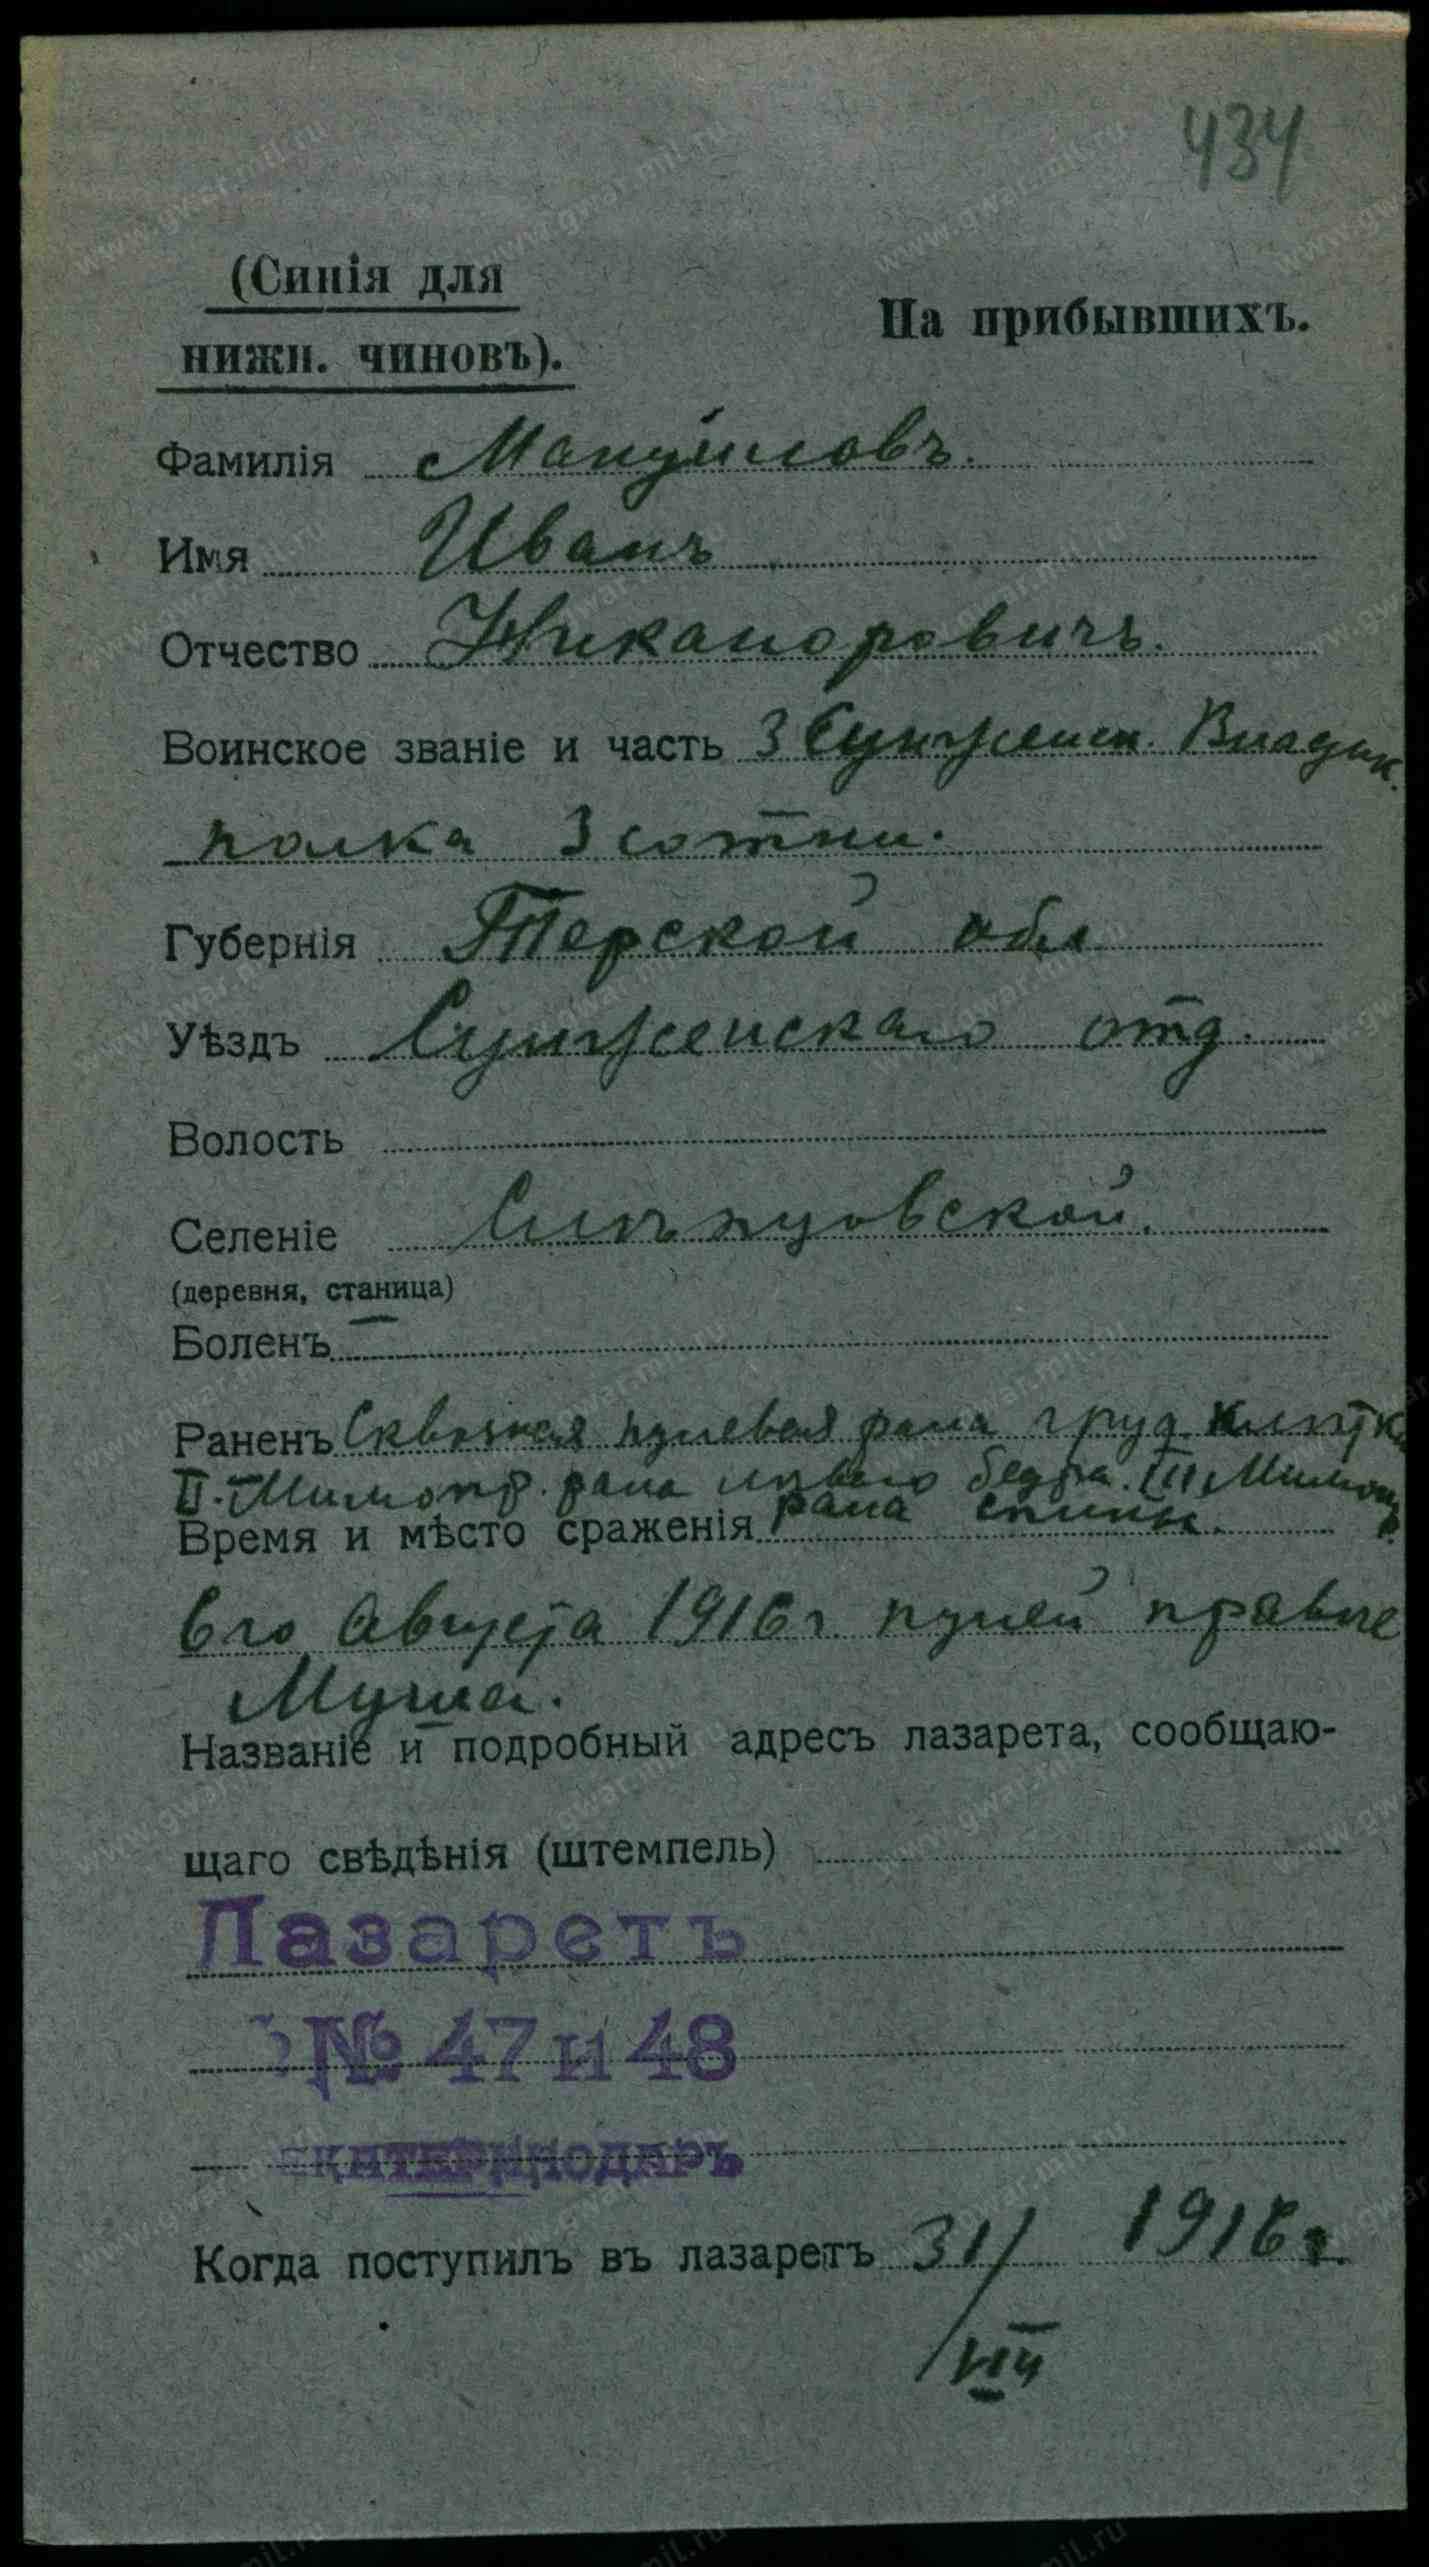 434
(Синія для
На прибывшихъ.
нижн. чиновъ).
Фамилія Мануиловъ.
Имя Иванъ
Отчество Никаноровичъ.
Воинское званіе и часть 3 Сунженск. Владик.
полка 3 сотни.
Губернія Терской обл
Уѣздъ Сунженскаго отд.
Волость
Селеніе Слѣпцовской.
(деревня, станица)
Боленъ —
Раненъ Сквозная пулевая рана груд. клѣтки
II. Мимолр. рана лѣваго бедра. III Мимолр.
Время и мѣсто сраженія рана спины.
6го Августа 1916 г. пулей правѣе
Муша.
Названіе и подробный адресъ лазарета, сообщаю-
щаго свѣдѣнія (штемпель)
Лазаретъ
№ 47 и 48
ЕКАТЕРИНОДАРЪ
Когда поступилъ въ лазаретъ 31/VIII 1916 г.
www.gwar.mil.ru